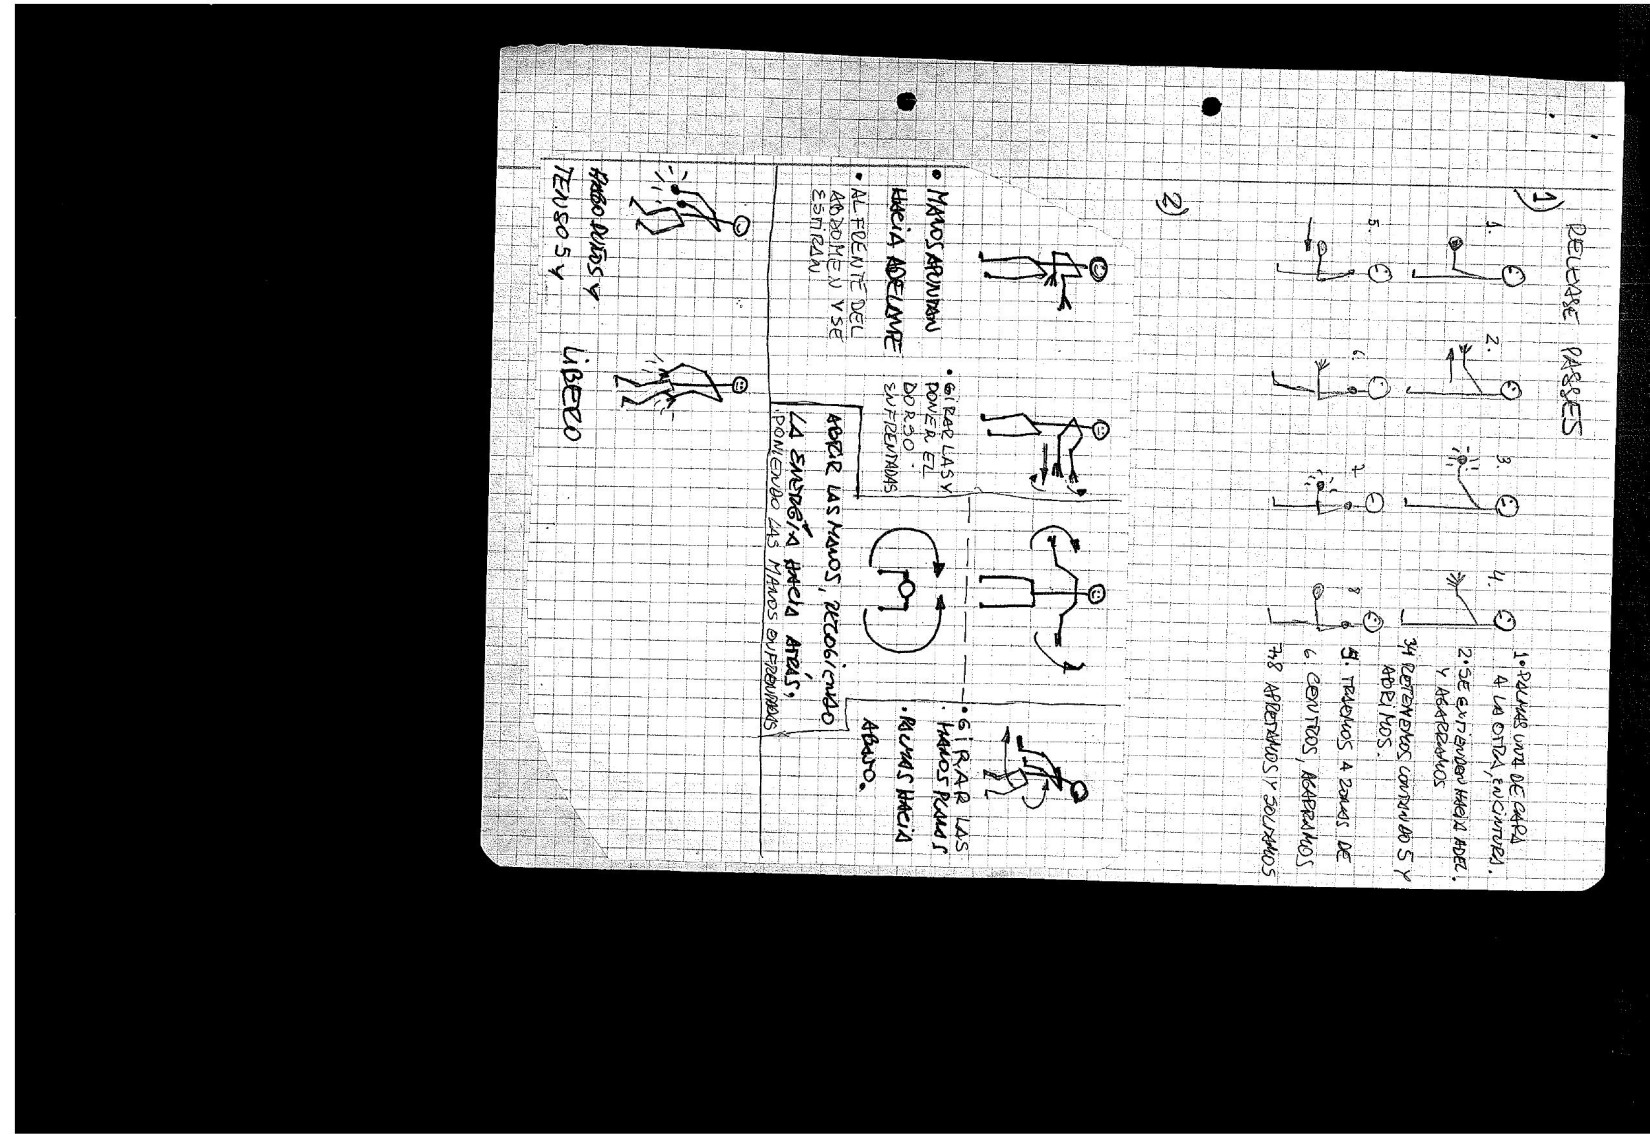 RELEASE PASSES
1)
1.
2.
3.
4.
1. PALMAS UNA DE CARA
A LA OTRA, EN CINTURA.
2. SE EXTIENDEN HACIA ADEL.
Y AGARRAMOS
3/4 RETENEMOS CONTANDO 5 Y
ABRIMOS.
5.
6.
7.
8
5. TRAEMOS A ZONAS DE
6. CENTROS, AGARRAMOS
7-8 APRETAMOS Y SOLTAMOS
2)
• MANOS APUNTAN
HACIA ADELANTE
• AL FRENTE DEL
ABDOMEN Y SE
ESTIRAN
• GIRAR LAS Y
PONER EL
DORSO
ENFRENTADAS
• GIRAR LAS
MANOS PLANAS
• PALMAS HACIA
ABAJO.
ABRIR LAS MANOS, RECOGIENDO
LA ENERGÍA HACIA ATRÁS,
PONIENDO LAS MANOS ENFRENTADAS
HAGO PUÑOS Y
TENSO 5 Y
LIBERO